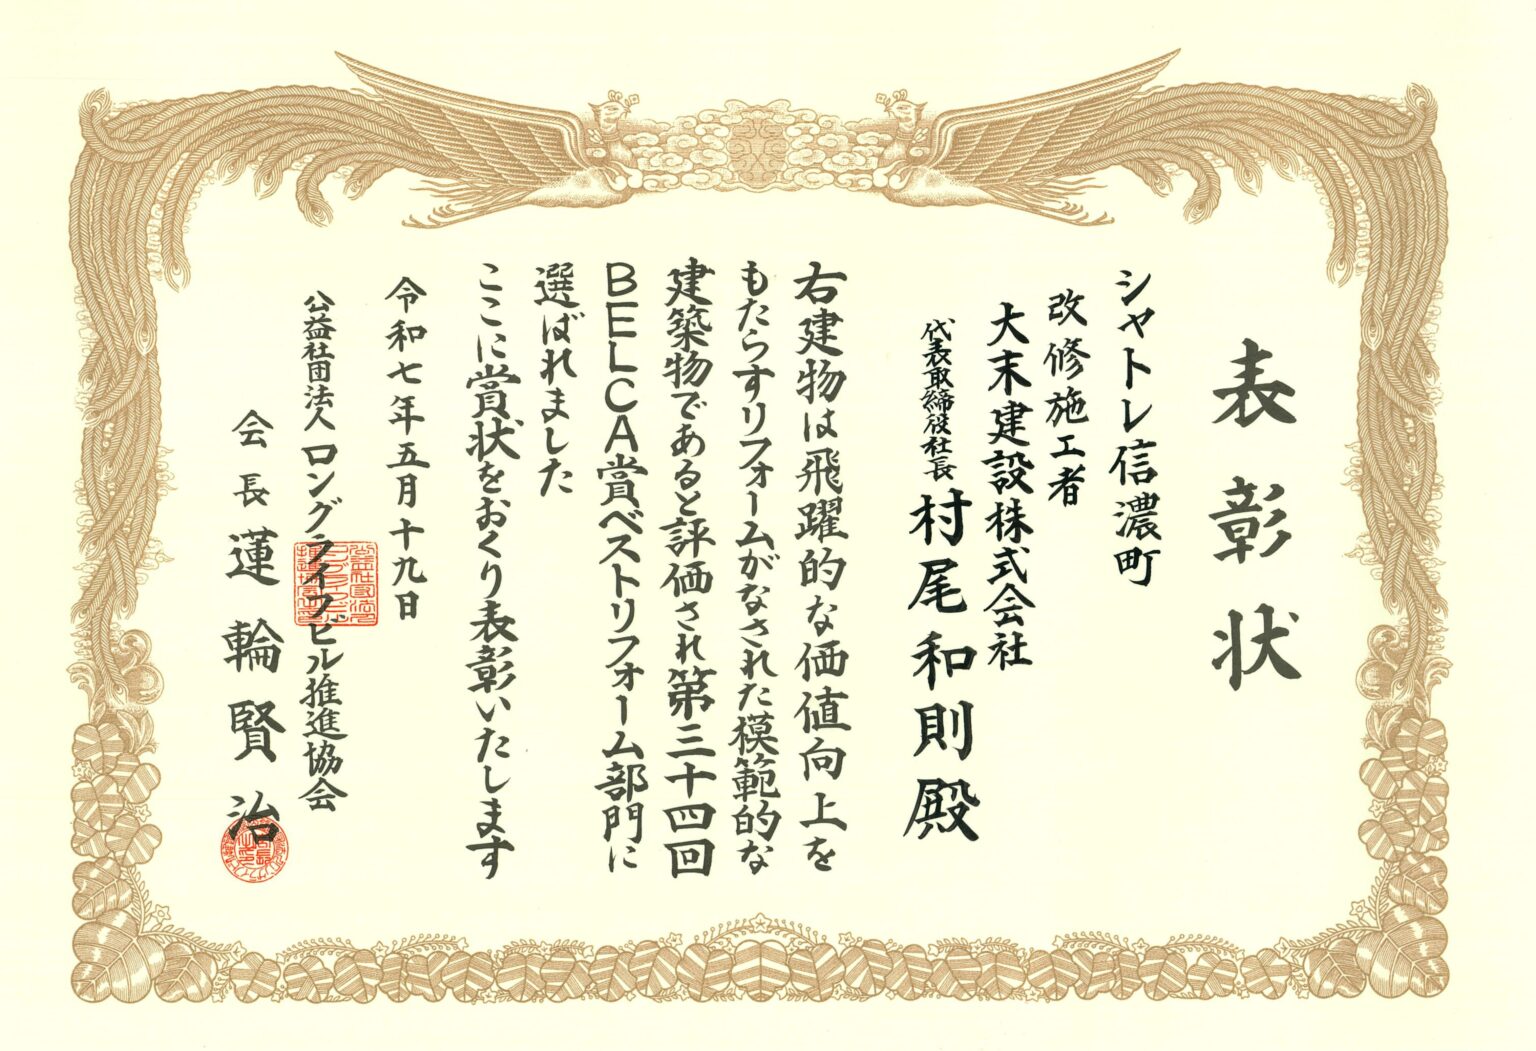 表彰状
シャトレ信濃町
改修施工者
大末建設株式会社
代表取締役社長 村尾和則殿
右建物は飛躍的な価値向上を
もたらすリフォームがなされた模範的な
建築物であると評価され第三十四回
BELCA賞ベストリフォーム部門に
選ばれました
ここに賞状をおくり表彰いたします
令和七年五月十九日
公益社団法人 ロングライフビル推進協会
会長 蓮輪賢治